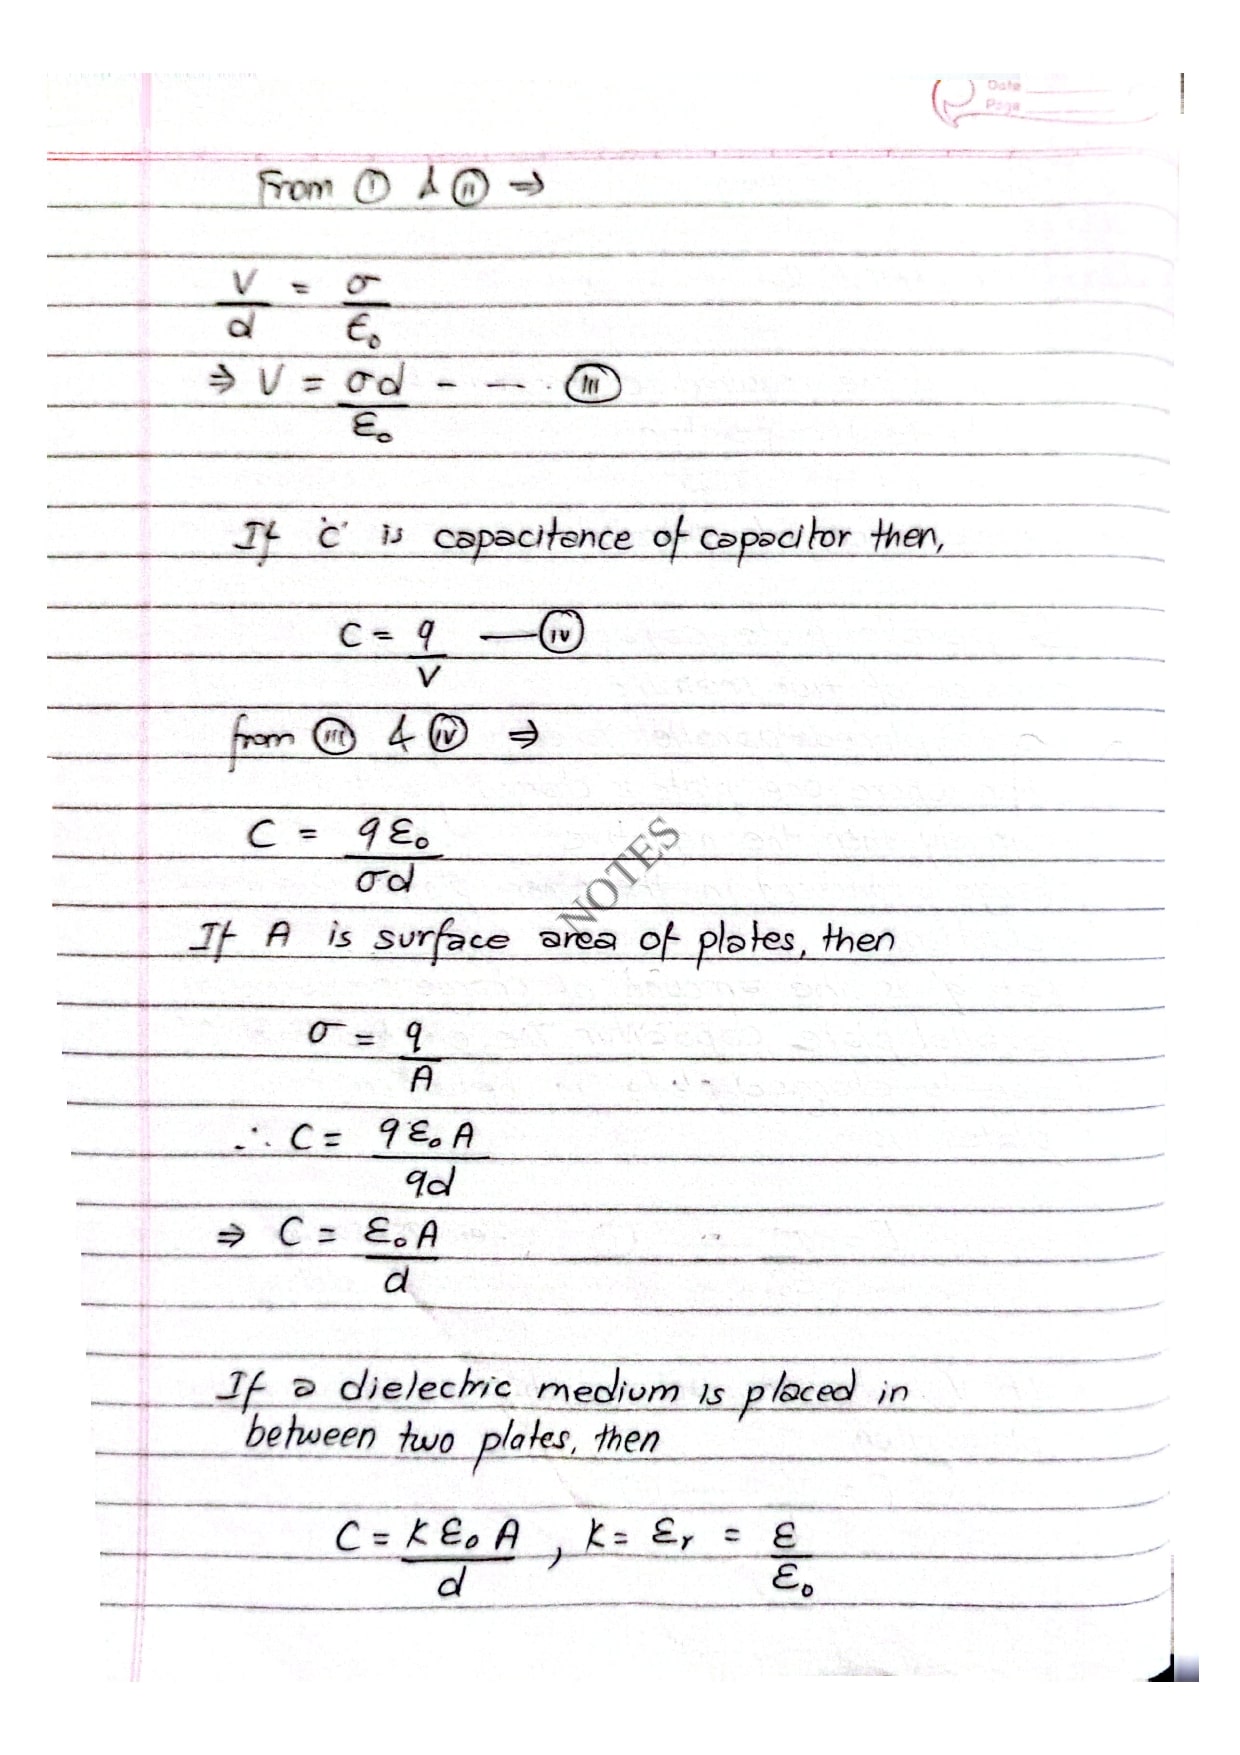 Date
Page
From (i) & (ii) ⇒
V/d = σ/ε₀
⇒ V = σd/ε₀ - - - (iii)
If 'c' is capacitance of capacitor then,
C = q/V — (iv)
from (iii) & (iv) ⇒
C = qε₀/σd
NOTES
If A is surface area of plates, then
σ = q/A
∴ C = qε₀A/qd
⇒ C = ε₀A/d
If a dielectric medium is placed in
between two plates, then
C = Kε₀A/d , K = εr = ε/ε₀